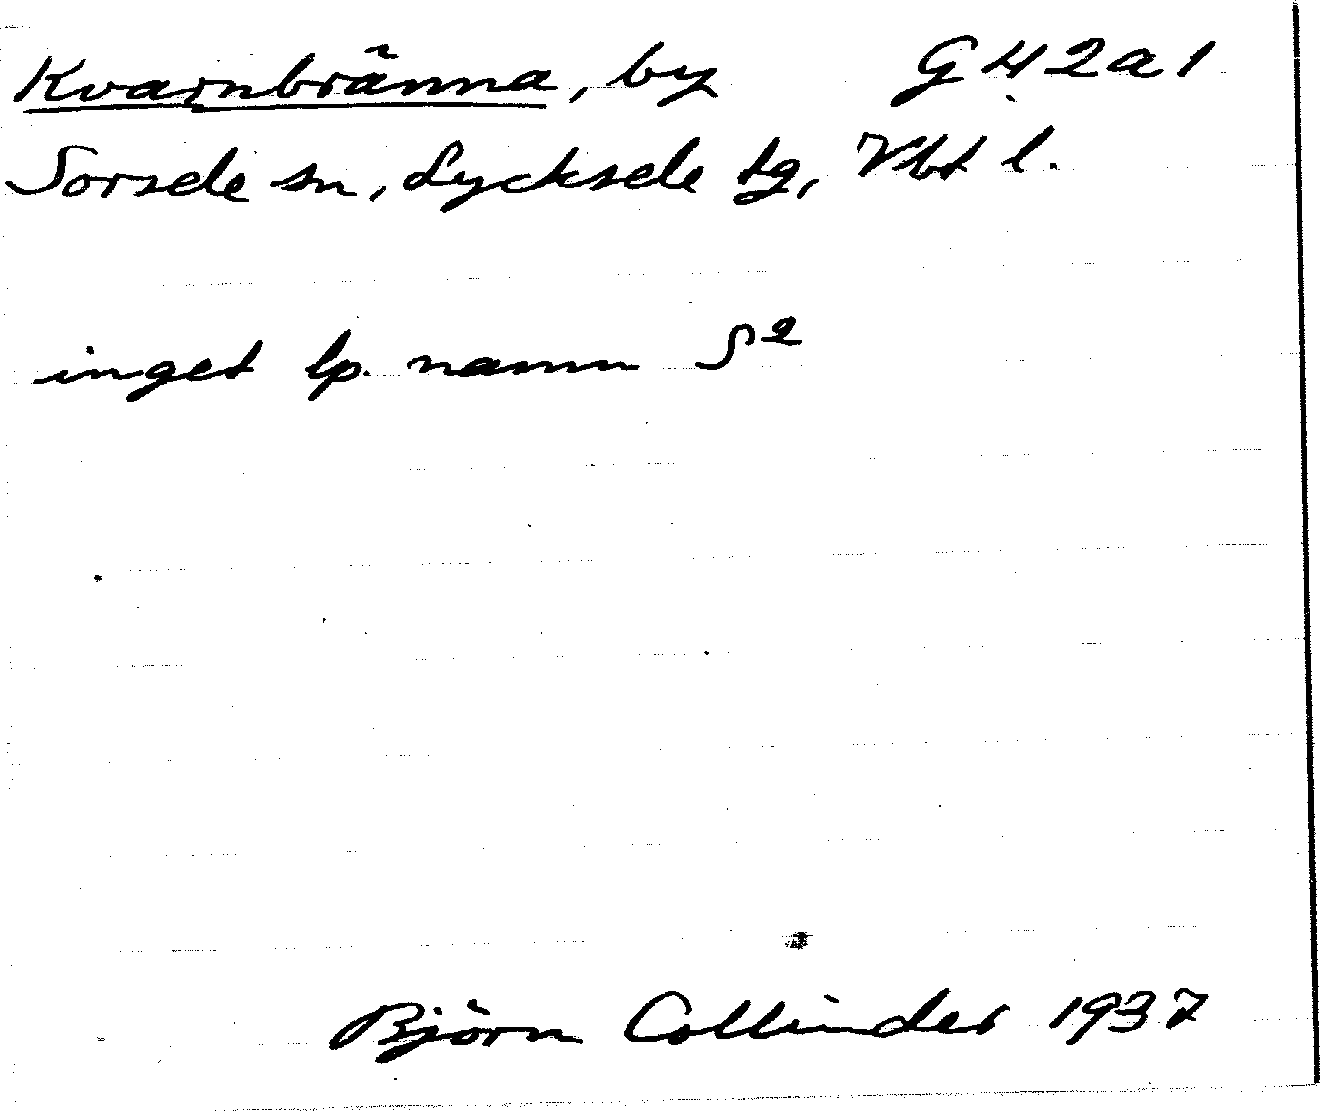 Kvarnbränna, by G42a1
Sorsele sn, Lycksele tg, Vbt l.
inget lp. namn S²
Björn Collinder 1937